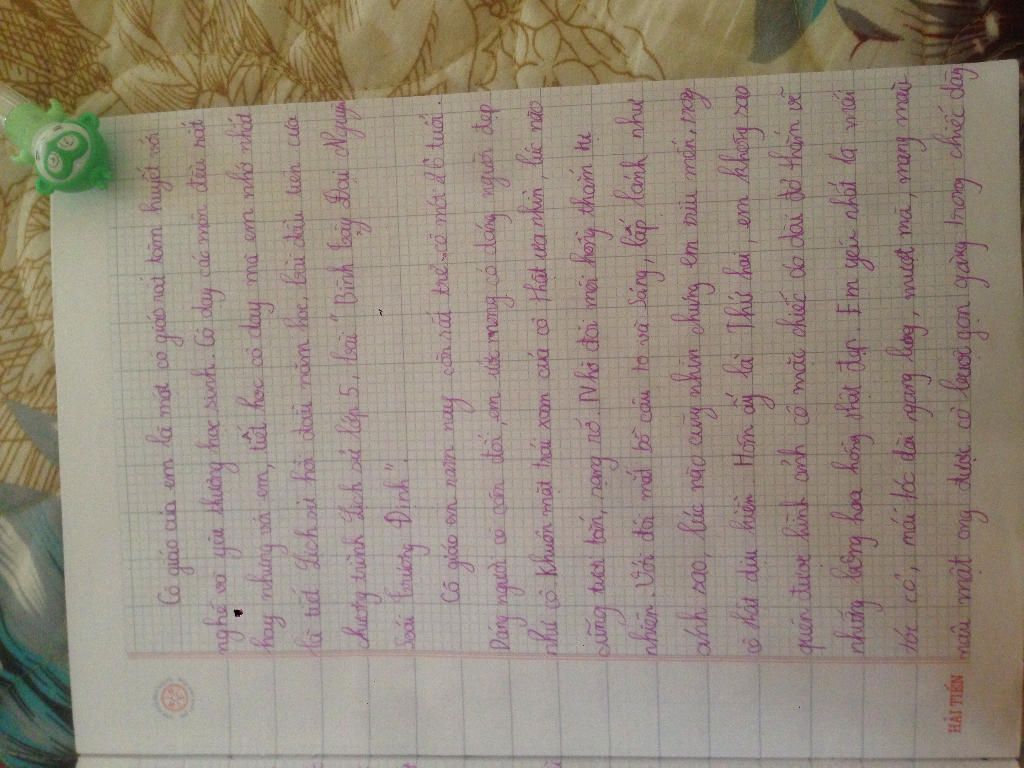 Cô giáo của em là một cô giáo rất tâm huyết với
nghề và yêu thương học sinh. Cô dạy các môn đều rất
hay nhưng với em, tiết học cô dạy mà em nhớ nhất
là tiết Lịch sử hồi đầu năm học, bài đầu tiên của
chương trình Lịch sử lớp 5, bài "Bình Tây Đại Nguyên
Soái Trương Định".
Cô giáo em năm nay còn rất trẻ - cô mới 26 tuổi.
Dáng người cô cân đối, em ước mong có dáng người đẹp
như cô. Khuôn mặt trái xoan của cô thật ưa nhìn, lúc nào
cũng tươi tắn, rạng rỡ. Nhờ đôi môi hồng thắm tự
nhiên. Với đôi mắt bồ câu to và sáng, lấp lánh như
ánh sao, lúc nào cũng nhìn chúng em trìu mến,
cô thật dịu hiền. Hôm ấy là Thứ hai, em không sao
quên được hình ảnh cô mặc chiếc áo dài đỏ thắm vẽ
những bông hoa hồng thật đẹp. Em yêu nhất là mái
tóc cô, mái tóc dài ngang lưng, mượt mà, mang màu
nâu mật ong được cô buộc gọn gàng trong chiếc dây
HẢI TIẾN